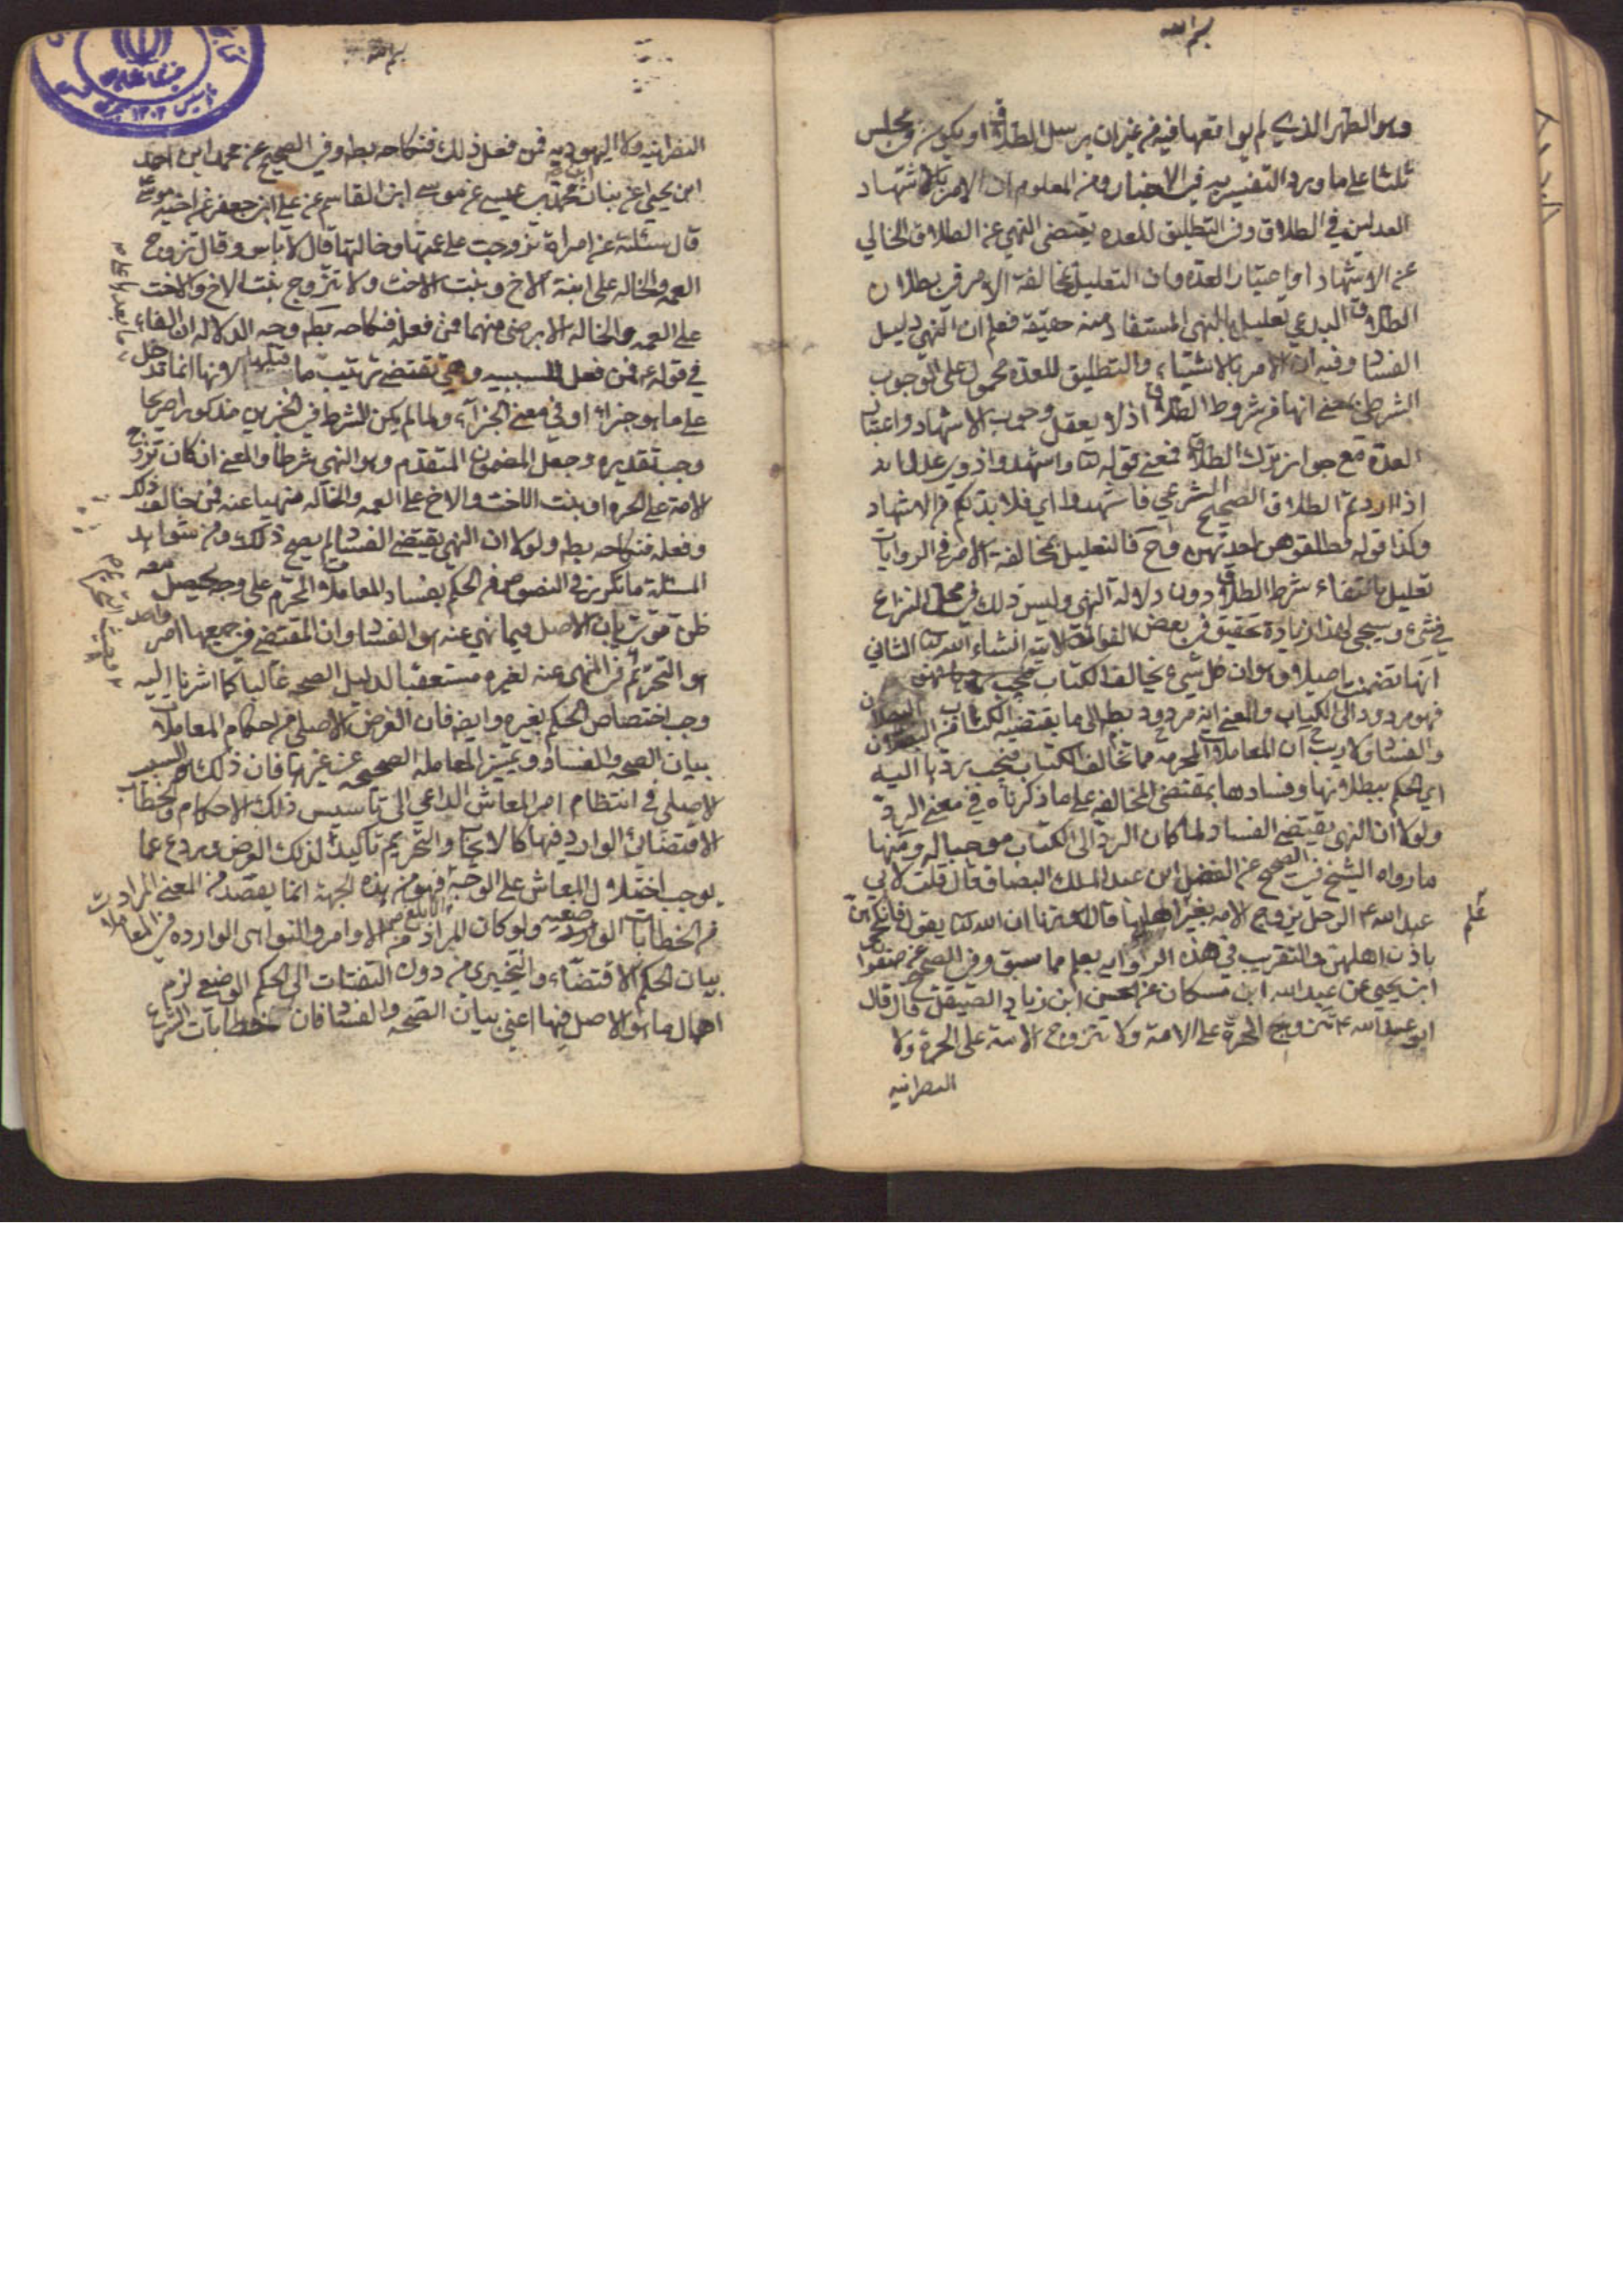 بسم الله
وهو الطهر الذي لم يواقعها فيه من غير ان يرسل الطلاق او يكون في مجلس
ثلثا على ما ورد التفسير به في الاخبار ومن المعلوم ان الامر بالاشهاد
العدلين في الطلاق وفي التطليق للعده يقتضى النهي عن الطلاق الخالي
عن الاشهاد او اعتبار العده وان التعليل بمخالفة الامر في بطلان
الطلاق البدعي تعليل بالنهي المستفاد منه حقيقة فعلم ان النهي دليل
الفساد وفيه ان الامر بالاشهاد والتطليق للعدة محمول على الوجوب
الشرطي بمعنى انها من شروط الطلاق اذ لا يعقل وجوب الاشهاد واعتبار
العدة مع جواز ترك الطلاق فمعنى قوله تعا واشهدوا ذوي عدل انه
اذا اردتم الطلاق الصحيح الشرعي فاشهدوا اي فلا بد لكم من الاشهاد
وكذا قوله فطلقوهن لعدتهن وح فالتعليل بمخالفة الامر في الروايات
تعليل بانتفاء شرط الطلاق دون دلالة النهي وليس ذلك من محل النزاع
في شيء وسيجئ لهذا زيادة تحقيق في بعض الفوائد الاتية انشاء الله تعا الثاني
انها تضمنت اصيلا وهو ان كل شيء يخالف الكتاب
فهو مردود الى الكتاب والمعنى انه مردود بطل الى ما يقتضيه الكتاب من البطلان
والفساد ولا ريب ان المعاملات المحرمة مما تخالف الكتاب فيجب ردها اليه
اي الحكم ببطلانها وفسادها بمقتضى المخالفة على ما ذكرناه في معنى الرد
ولولا ان النهي يقتضي الفساد لما كان الرد الى الكتاب موجبا له ومنها
ما رواه الشيخ في الصحيح عن الفضل ابن عبد الملك البصاق قال قلت لابي
عبد الله ع الرجل يزوج الامه بغير اهلها قال هو زنا ان الله تعا يقول فانكحوهن
باذن اهلهن والتقريب في هذه الرواية يعلم مما سبق وفي الصحيح عن صفوان
ابن يحيى عن عبد الله ابن مسكان عن الحسن ابن زياد الصيقل قال قال
ابو عبد الله ع تزوج الحرة على الامة ولا تتزوج الامة على الحرة ولا
النصرانيه
بسم الله
النصرانيه ولا اليهوديه فمن فعل ذلك فنكاحه بطل وفي الصحيح عن محمد ابن احمد
ابن يحيى عن بنان ابن محمد بن عيسى عن موسى ابن القاسم عن علي ابن جعفر عن اخيه موسى ع
قال سئلته عن امراة تزوجت على عمتها وخالتها قال لا باس وقال تزوج
العمه والخاله على ابنة الاخ وبنت الاخت ولا تتزوج بنت الاخ والاخت
على العمه والخاله الا برضى منهما فمن فعل فنكاحه بطل وجه الدلاله ان الفاء
في قوله ع فمن فعل للسببيه وهي تقتضي ترتيب ما قبلها لانها انما تدخل
على ما هو جزاء او في معنى الجزاء ولما لم يكن الشرط في الخبرين مذكورا صريحا
وجب تقديره وجعل المضمون المتقدم وهو النهي شرطا والمعنى ان كان تزوج
الامة على الحره او بنت الاخت والاخ على العمه والخاله منهيا عنه فمن خالف ذلك
وفعله فنكاحه بطل ولولا ان النهي يقتضي الفساد لم يصح ذلك ومن شواهد
المسئلة ما تكرر في النصوص من الحكم بفساد المعاملات المحرم على وجه يحصل معه
ظن قوي بان الاصل فيما نهي عنه هو الفساد وان المقتضى في جميعها امر واحد
هو التحريم فمن النهي عنه لغيره مستعقبا لدليل الصحه غالبا كما اشرنا اليه
وجب اختصاص الحكم بغيره وايضه فان الغرض الاصلي من احكام المعاملات
بيان الصحه والفساد وتميز المعامله الصحيحه عن غيرها فان ذلك هو السبب
الاصلي في انتظام امر المعاش الداعي الى تاسيس ذلك الاحكام والخطاب
الاقتضائي الوارد فيها كالايجاب والتحريم تاكيد لذلك الغرض وردع عما
يوجب اختلال المعاش على الوجه فهو من هذه الجهة انما يقصد من المعنى المراد
من الخطابات الوارده ولو كان المراد من الاوامر والنواهى الوارده في المعاملات
بيان الحكم الاقتضاء والتخييري من دون التفات الى الحكم الوضعي لزم
اهمال ما هو الاصل فيها اعني بيان الصحه والفساد فان خطابات الشرع